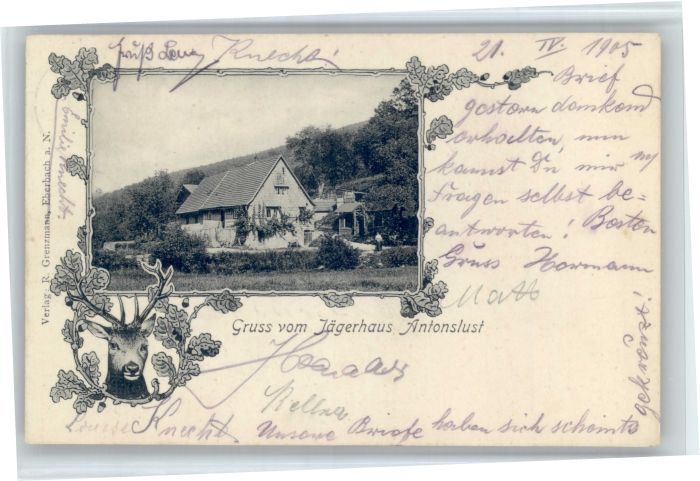 Gruß Knecht
21. IV. 1905
Brief
gestern dankend
erhalten, nun
kannst Du mir
Fragen selbst be-
antworten! Besten
Gruss Hermann
Matt
gekreuzt!
Emilie Knecht.
Verlag: R. Grenzmann, Eberbach a. N.
Gruss vom Jägerhaus Antonslust
Kellner
Louise Knecht.
Unsere Briefe haben sich scheints